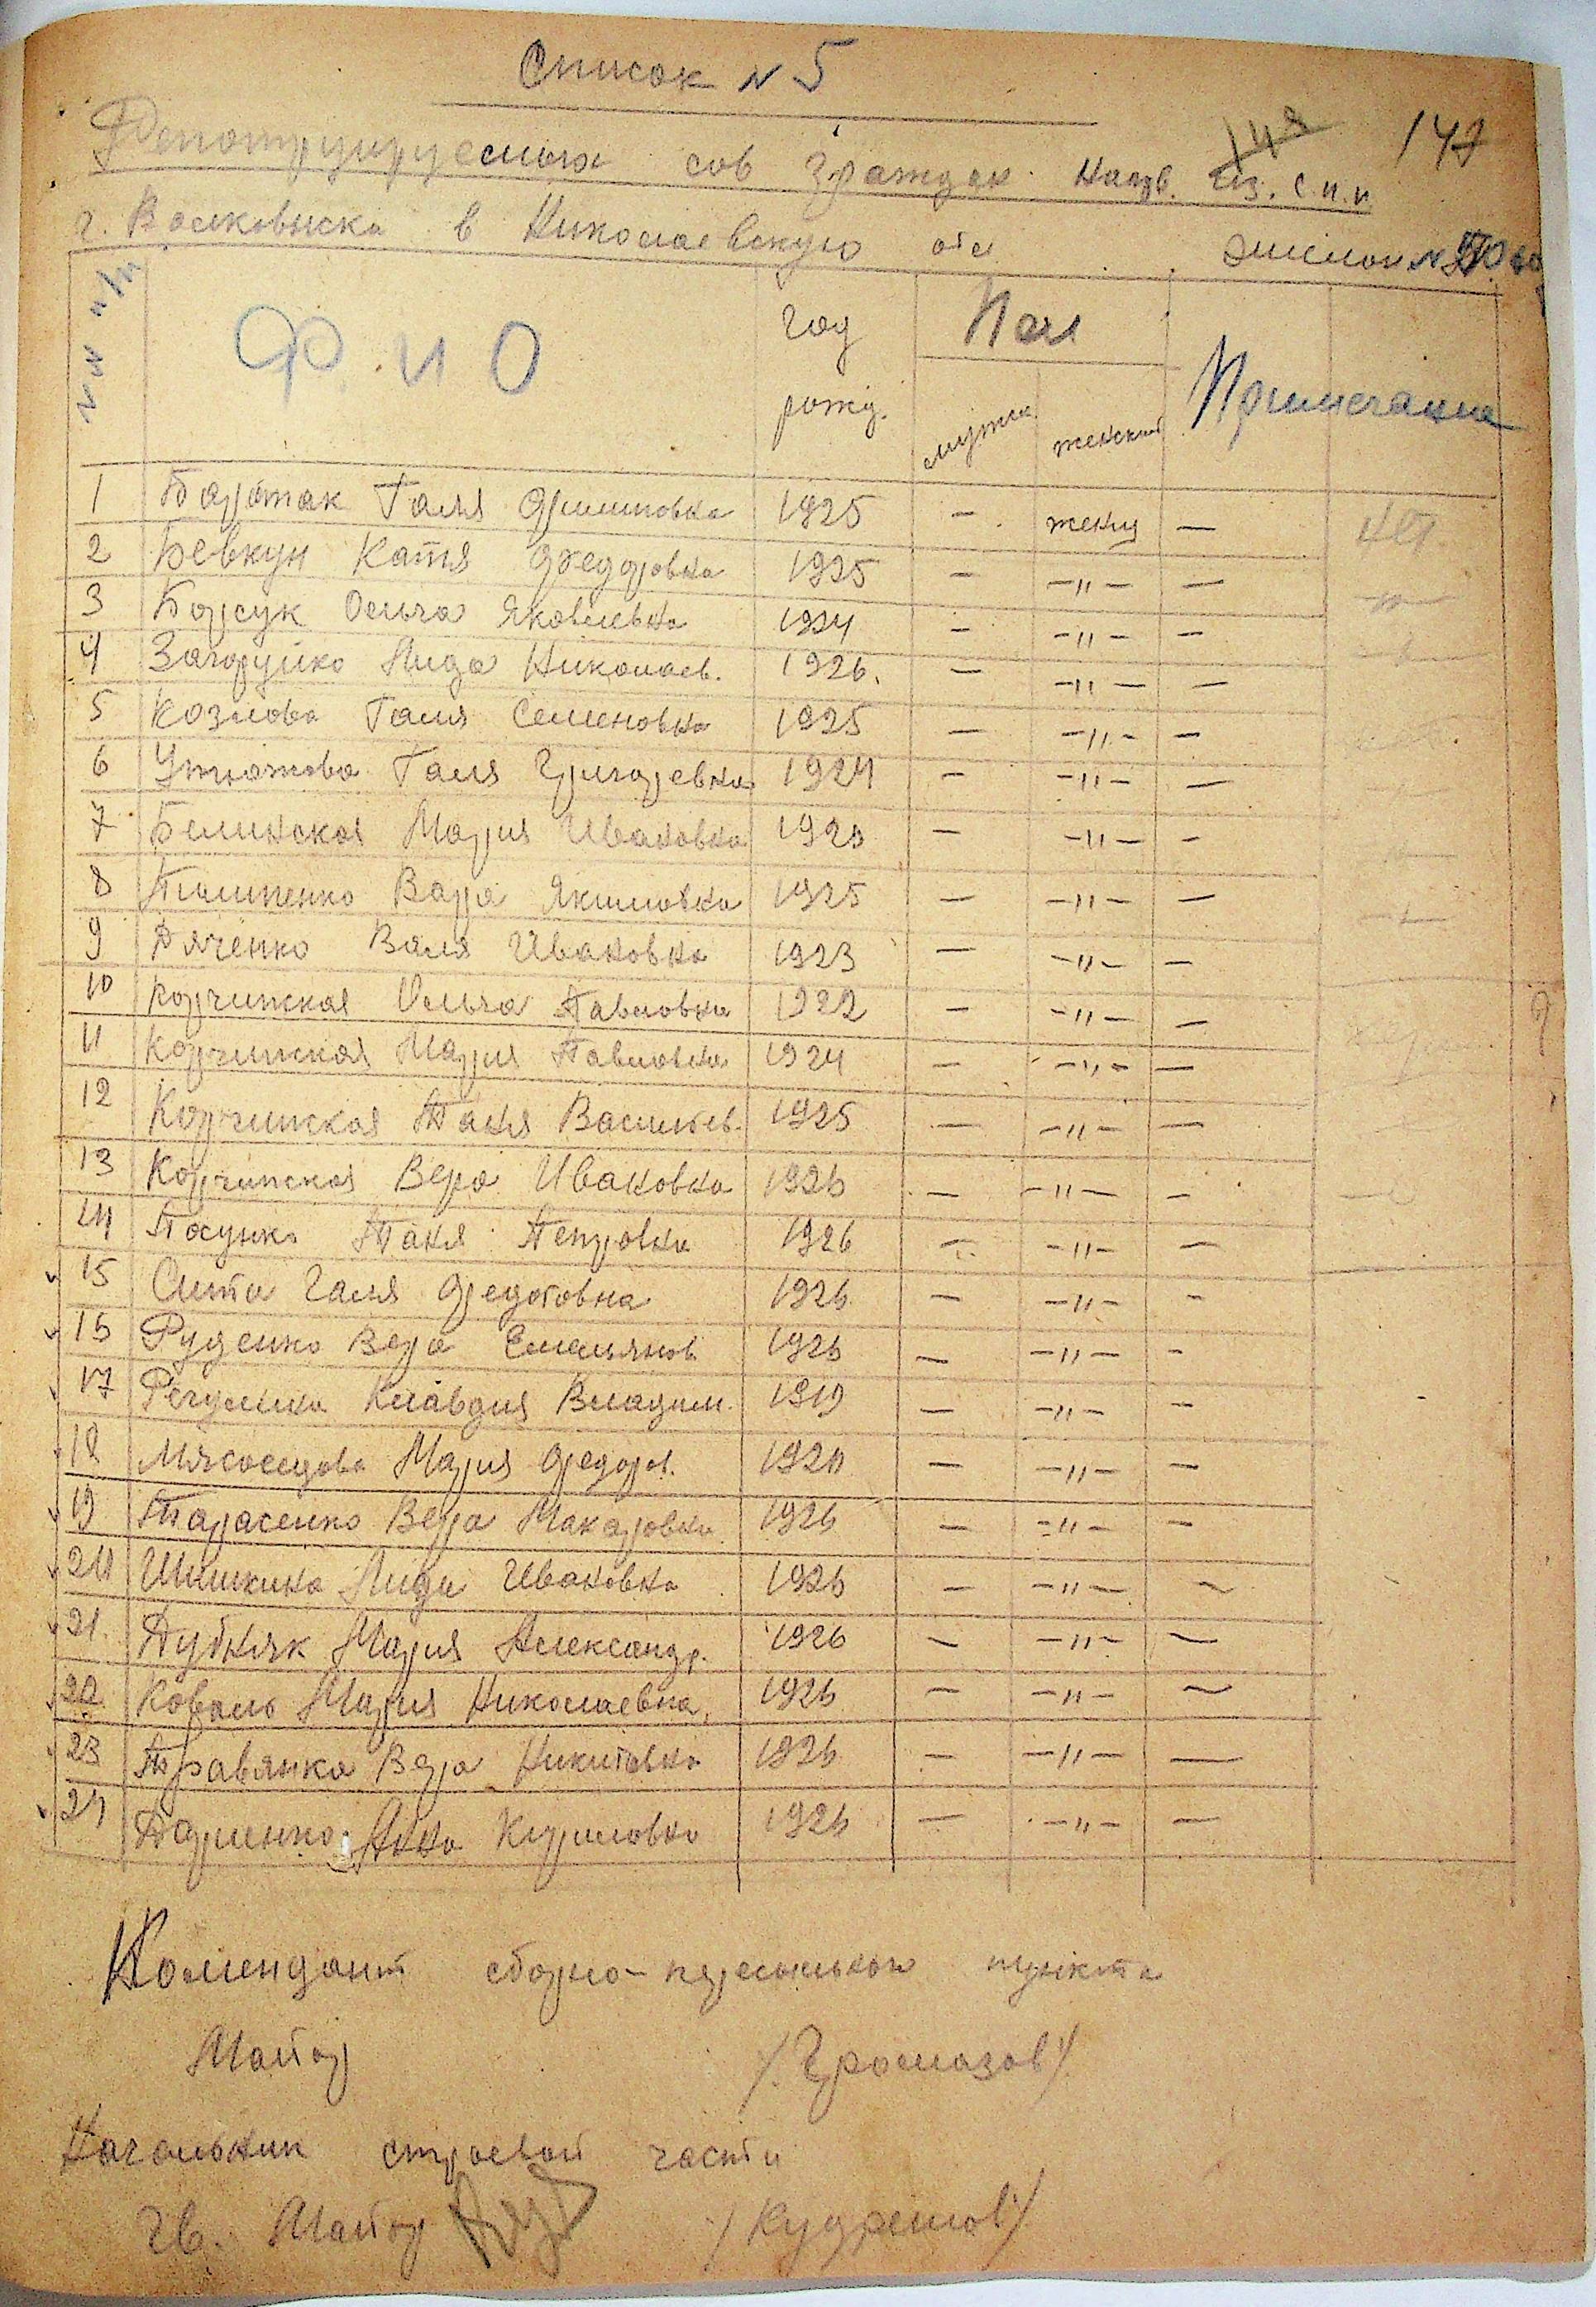 Список N 5
147
Репотрируемых сов граждан. напр. из. с.п.п.
г. Волковыска в Николаевскую обл эшелон N
NN п/п Ф. и О Год рожд. Пол мужск женский Примечание
1 Галя 1925 - женщ —
2 Бевкун Катя Федоровна 1925 - -"- —
3 Борсук Ольга Яковлевна 1924 - -"- —
4 Загоруйко Лида Николаев. 1926. — -"- —
5 Козлова Галя Семеновна 1925 — -"- —
6 Галя Григоревна 1924 - -"- —
7 Белинская Мария Ивановна — -"- -
8 Пилипенко Варя Якимовна 1925 — -"- —
9 Дяченко Валя Ивановна 1923 — -"- —
10 Корчинская Ольга Павловна 1922 - -"- —
11 Корчинская Мария Павловна 1924 — -"- —
12 Корчинская Таня Васильев. 1925 — -"- —
13 Корчинская Вера Ивановна 1926 — -"- -
14 Таня Петровна 1926 — -"- —
15 Сита Галя Федотовна 1926 — -"- -
16 Руденко Вера Емельянов 1926 — -"- -
17 Клавдия Владим. 1919 — -"- -
18 Мясоедова Мария Федоров. 1920 — -"- —
19 Тарасенко Вера Макаровна 1926 — -"- —
20 Шишкина Лида Ивановна 1926 — -"- ~
21. Дубняк Мария Александр. 1926 — -"- —
22 Коваль Мария Николаевна. 1926 — -"- ~
23 Травянка Вера Никитовна 1926 — -"- —
24 Анна Кириловна 1926 — -"- —
Комендант сборно-пересыльного пункта
Майор /Громазов/
Начальник строевой части
Гв. Майор /Кудрешов/